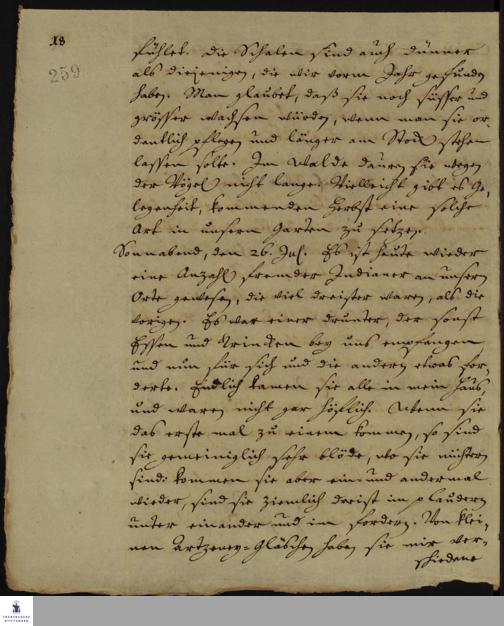 18
259
fühlet. Die Schalen sind auch dünner
als diejenigen, die wir vorm Jahr gefunden
haben. Man glaubet, daß sie noch süsser und
grösser wachsen würden, wenn man sie or-
dentlich pflegen und länger am Stock stehen
lassen solte. Im Walde dauren sie wegen
der Vögel nicht lange. Vielleicht gibt es Ge-
legenheit, kommenden Herbst eine solche
Art in unsern Garten zu setzen.
Sonnabend, den 26. Jul. Es ist heute wieder
eine Anzahl fremder Indianer an unserm
Orte gewesen, die viel dreister waren, als die
vorigen. Es war einer drunter, der sonst
Essen und Trinken bey uns empfangen
und nun für sich und die andern etwas for-
derte. Endlich kamen sie alle in mein Haus,
und waren nicht gar höflich. Wenn sie
das erste mal zu einem kommen, so sind
sie gemeiniglich sehr blöde, wo sie nüchtern
sind: kommen sie aber ein und andermal
wieder, sind sie ziemlich dreist im plaudern
unter einander und im fordern. Von klei-
nen Artzeney-Gläschen haben sie mir ver-
schiedene
FRANCKESCHE
STIFTUNGEN